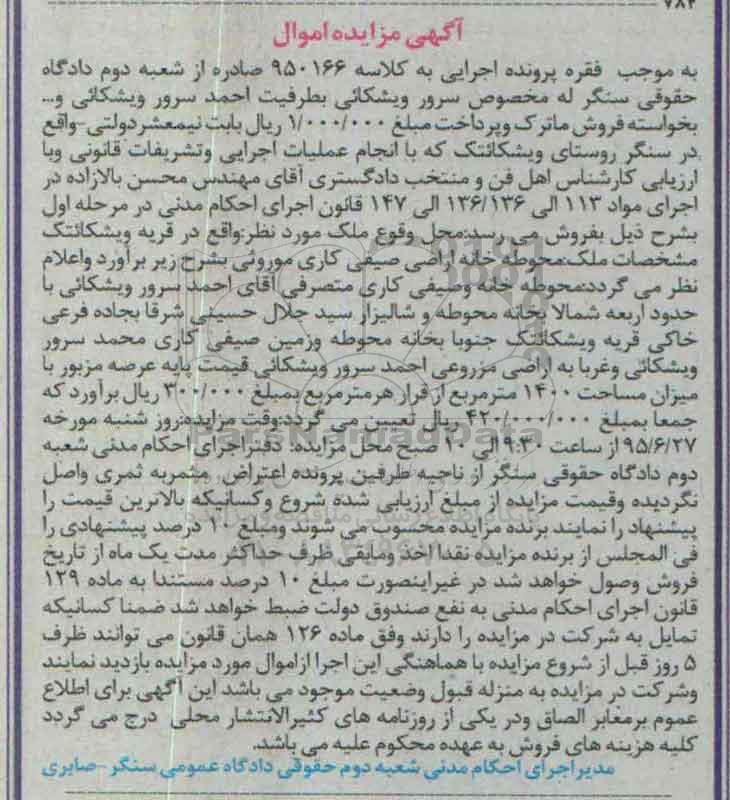 ۷۸۲
آگهی مزایده اموال
به موجب فقره پرونده اجرایی به کلاسه ۹۵۰۱۶۶ صادره از شعبه دوم دادگاه
حقوقی سنگر له مخصوص سرور ویشکائی بطرفیت احمد سرور ویشکائی و...
بخواسته فروش ماترک وپرداخت مبلغ ۱/۰۰۰/۰۰۰ ریال بابت نیمعشردولتی-واقع
در سنگر روستای ویشکائتک که با انجام عملیات اجرایی وتشریفات قانونی وبا
ارزیابی کارشناس اهل فن و منتخب دادگستری آقای مهندس محسن بالازاده در
اجرای مواد ۱۱۳ الی ۱۲۶/۱۳۶ الی ۱۴۷ قانون اجرای احکام مدنی در مرحله اول
بشرح ذیل بفروش می رسد:محل وقوع ملک مورد نظر:واقع در قریه ویشکائتک
مشخصات ملک:محوطه خانه اراضی صیفی کاری موروثی بشرح زیر برآورد واعلام
نظر می گردد:محوطه خانه وصیفی کاری متصرفی آقای احمد سرور ویشکائی با
حدود اربعه شمالا بخانه محوطه و شالیزار سید جلال حسینی شرقا بجاده فرعی
خاکی قریه ویشکائتک جنوبا بخانه محوطه وزمین صیفی کاری محمد سرور
ویشکائی وغربا به اراضی مزروعی احمد سرور ویشکائی قیمت پایه عرصه مزبور با
میزان مساحت ۱۴۰۰ مترمربع از قرار هرمترمربع بمبلغ ۳۰۰/۰۰۰ ریال برآورد که
جمعا بمبلغ ۴۲۰/۰۰۰/۰۰۰ ریال تعیین می گردد:وقت مزایده:روز شنبه مورخه
۹۵/۶/۲۷ از ساعت ۹:۳۰ الی ۱۰ صبح محل مزایده: دفتراجرای احکام مدنی شعبه
دوم دادگاه حقوقی سنگر از ناحیه طرفین پرونده اعتراض مثمربه ثمری واصل
نگردیده وقیمت مزایده از مبلغ ارزیابی شده شروع وکسانیکه بالاترین قیمت را
پیشنهاد را نمایند برنده مزایده محسوب می شوند ومبلغ ۱۰ درصد پیشنهادی را
فی المجلس از برنده مزایده نقدا اخذ ومابقی ظرف حداکثر مدت یک ماه از تاریخ
فروش وصول خواهد شد در غیراینصورت مبلغ ۱۰ درصد مستندا به ماده ۱۲۹
قانون اجرای احکام مدنی به نفع صندوق دولت ضبط خواهد شد ضمنا کسانیکه
تمایل به شرکت در مزایده را دارند وفق ماده ۱۲۶ همان قانون می توانند ظرف
۵ روز قبل از شروع مزایده با هماهنگی این اجرا ازاموال مورد مزایده بازدید نمایند
وشرکت در مزایده به منزله قبول وضعیت موجود می باشد این آگهی برای اطلاع
عموم برمعابر الصاق ودر یکی از روزنامه های کثیرالانتشار محلی درج می گردد
کلیه هزینه های فروش به عهده محکوم علیه می باشد.
مدیراجرای احکام مدنی شعبه دوم حقوقی دادگاه عمومی سنگر -صابری
ParsNamadData